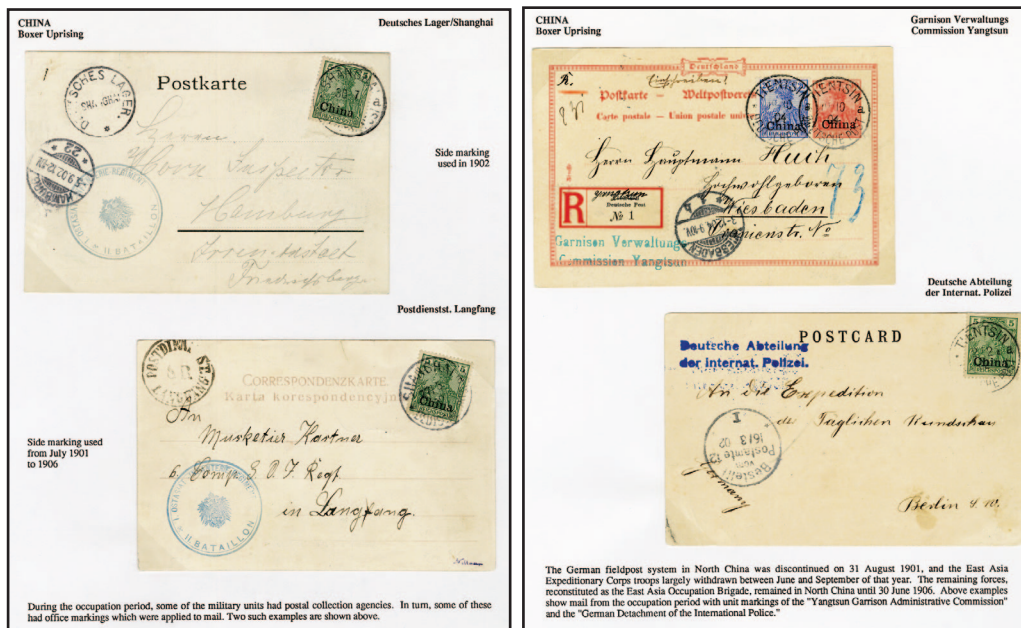 CHINA
Boxer Uprising
Deutsches Lager/Shanghai
Postkarte
China
Side marking
used in 1902
Herrn
Inspector
Hamburg
HAMBURG
5.9.02.12-1N
* 22 *
II BATAILLON
Friedrichsberg
Postdienstst. Langfang
CORRESPONDENZKARTE.
Karta korespondencyjna
China
Side marking used
from July 1901
to 1906
An
Musketier Kastner
6. Comp. 
in Langfang.
II. BATAILLON
During the occupation period, some of the military units had postal collection agencies. In turn, some of these
had office markings which were applied to mail. Two such examples are shown above.
CHINA
Boxer Uprising
Garnison Verwaltungs
Commission Yangtsun
Deutschland
Einschreiben!
Postkarte — Weltpostverein
Carte postale — Union postale
TIENTSIN
China
China
Herrn Hauptmann Huch
Hochwohlgeboren
Wiesbaden
73
R
Deutsche Post
№ 1
WIESBADEN
Garnison Verwaltungs
Commission Yangtsun
Deutsche Abteilung
der Internat. Polizei
POSTCARD
Deutsche Abteilung
der internat. Polizei.
TIENTSIN
China
An die Expedition
der Täglichen Rundschau
Bestellt
vom
Postamte 12
16/3 02
I
Germany
Berlin S.W.
The German fieldpost system in North China was discontinued on 31 August 1901, and the East Asia
Expeditionary Corps troops largely withdrawn between June and September of that year. The remaining forces,
reconstituted as the East Asia Occupation Brigade, remained in North China until 30 June 1906. Above examples
show mail from the occupation period with unit markings of the "Yangtsun Garrison Administrative Commission"
and the "German Detachment of the International Police."